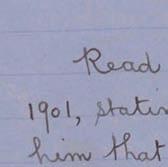 Read
1901, statin
him that